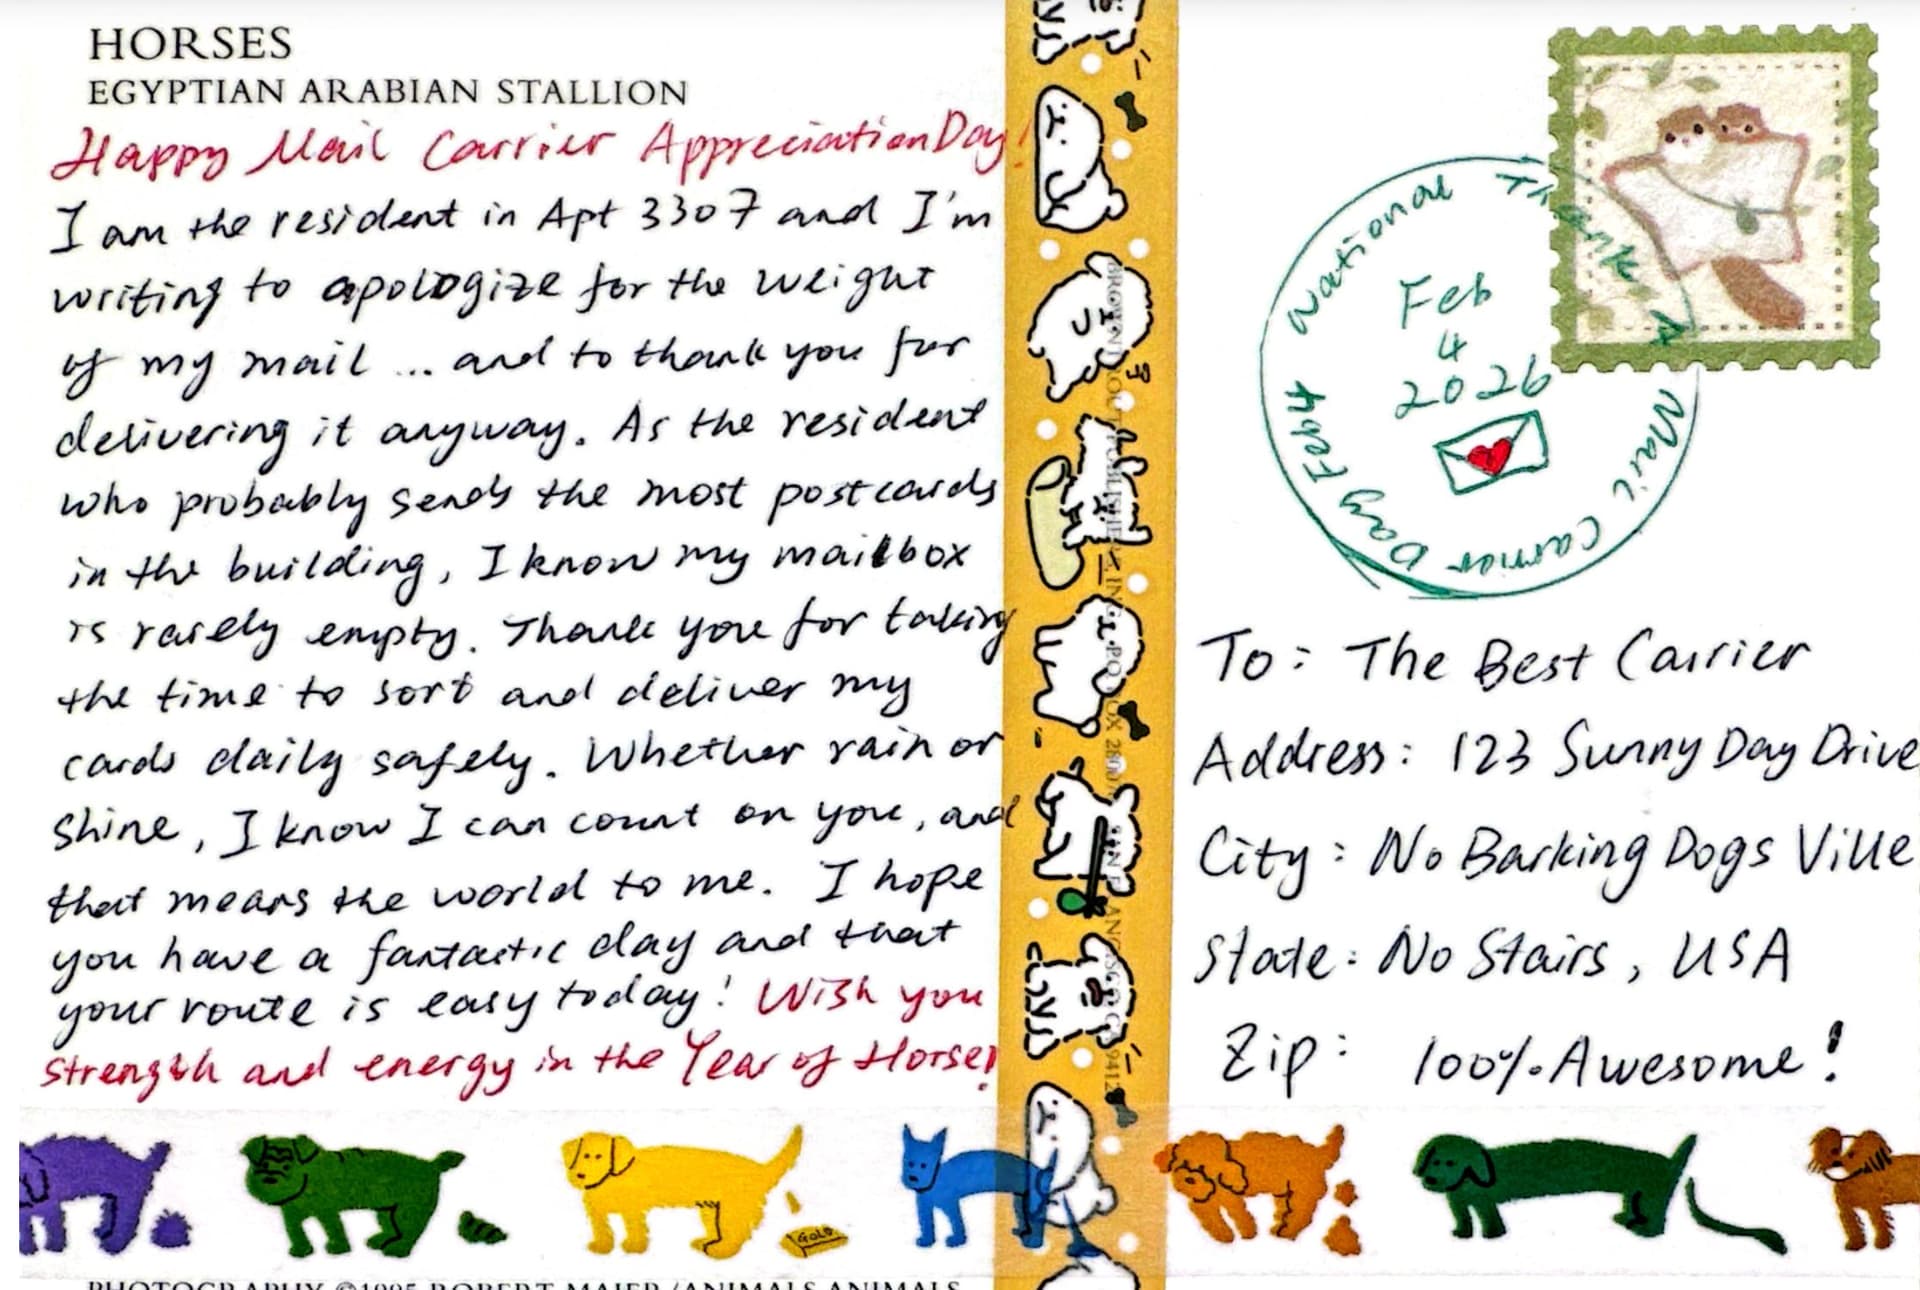 HORSES
EGYPTIAN ARABIAN STALLION
Happy Mail Carrier Appreciation Day!
I am the resident in Apt 3307 and I'm
writing to apologize for the weight
of my mail ... and to thank you for
delivering it anyway. As the resident
who probably sends the most postcards
in the building, I know my mailbox
is rarely empty. Thank you for taking
the time to sort and deliver my
cards daily safely. Whether rain or
shine, I know I can count on you, and
that means the world to me. I hope
you have a fantastic day and that
your route is easy today! Wish you
strength and energy in the Year of Horse!
National Thank A Mail Carrier Day Feb 4
Feb
4
2026
To: The Best Carrier
Address: 123 Sunny Day Drive
City: No Barking Dogs Ville
State: No Stairs, USA
Zip: 100% Awesome!
GOLD
PHOTOGRAPHY ©1995 ROBERT MAIER/ANIMALS ANIMALS